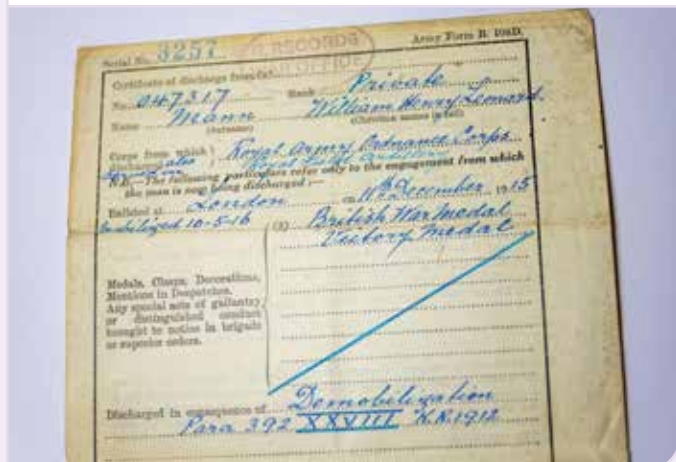 Serial No. 3257
RECORDS
WAR OFFICE
Army Form B. 108D.
Certificate of discharge from (a)
No. 047317 Rank Private
Name Mann William Henry Leonard
(Surname) (Christian names in full)
Corps from which discharged Royal Army Ordnance Corps
also served in Royal Field Artillery
N.B.—The following particulars refer only to the engagement from which
the man is now being discharged :—
Enlisted at London on 11th December 1915
Mobilized 10-5-16
Medals, Clasps, Decorations,
Mentions in Despatches.
Any special acts of gallantry
or distinguished conduct
brought to notice in brigade
or superior orders.
British War Medal
Victory Medal
Discharged in consequence of Demobilization
Para 392 XXVIII K.R. 1912